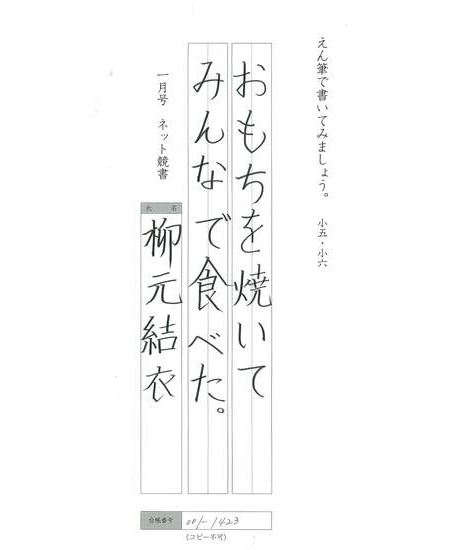 えん筆で書いてみましょう。 小五・小六
おもちを焼いて
みんなで食べた。
一月号 ネット競書
氏名
柳元結衣
台帳番号 001-1423
(コピー不可)